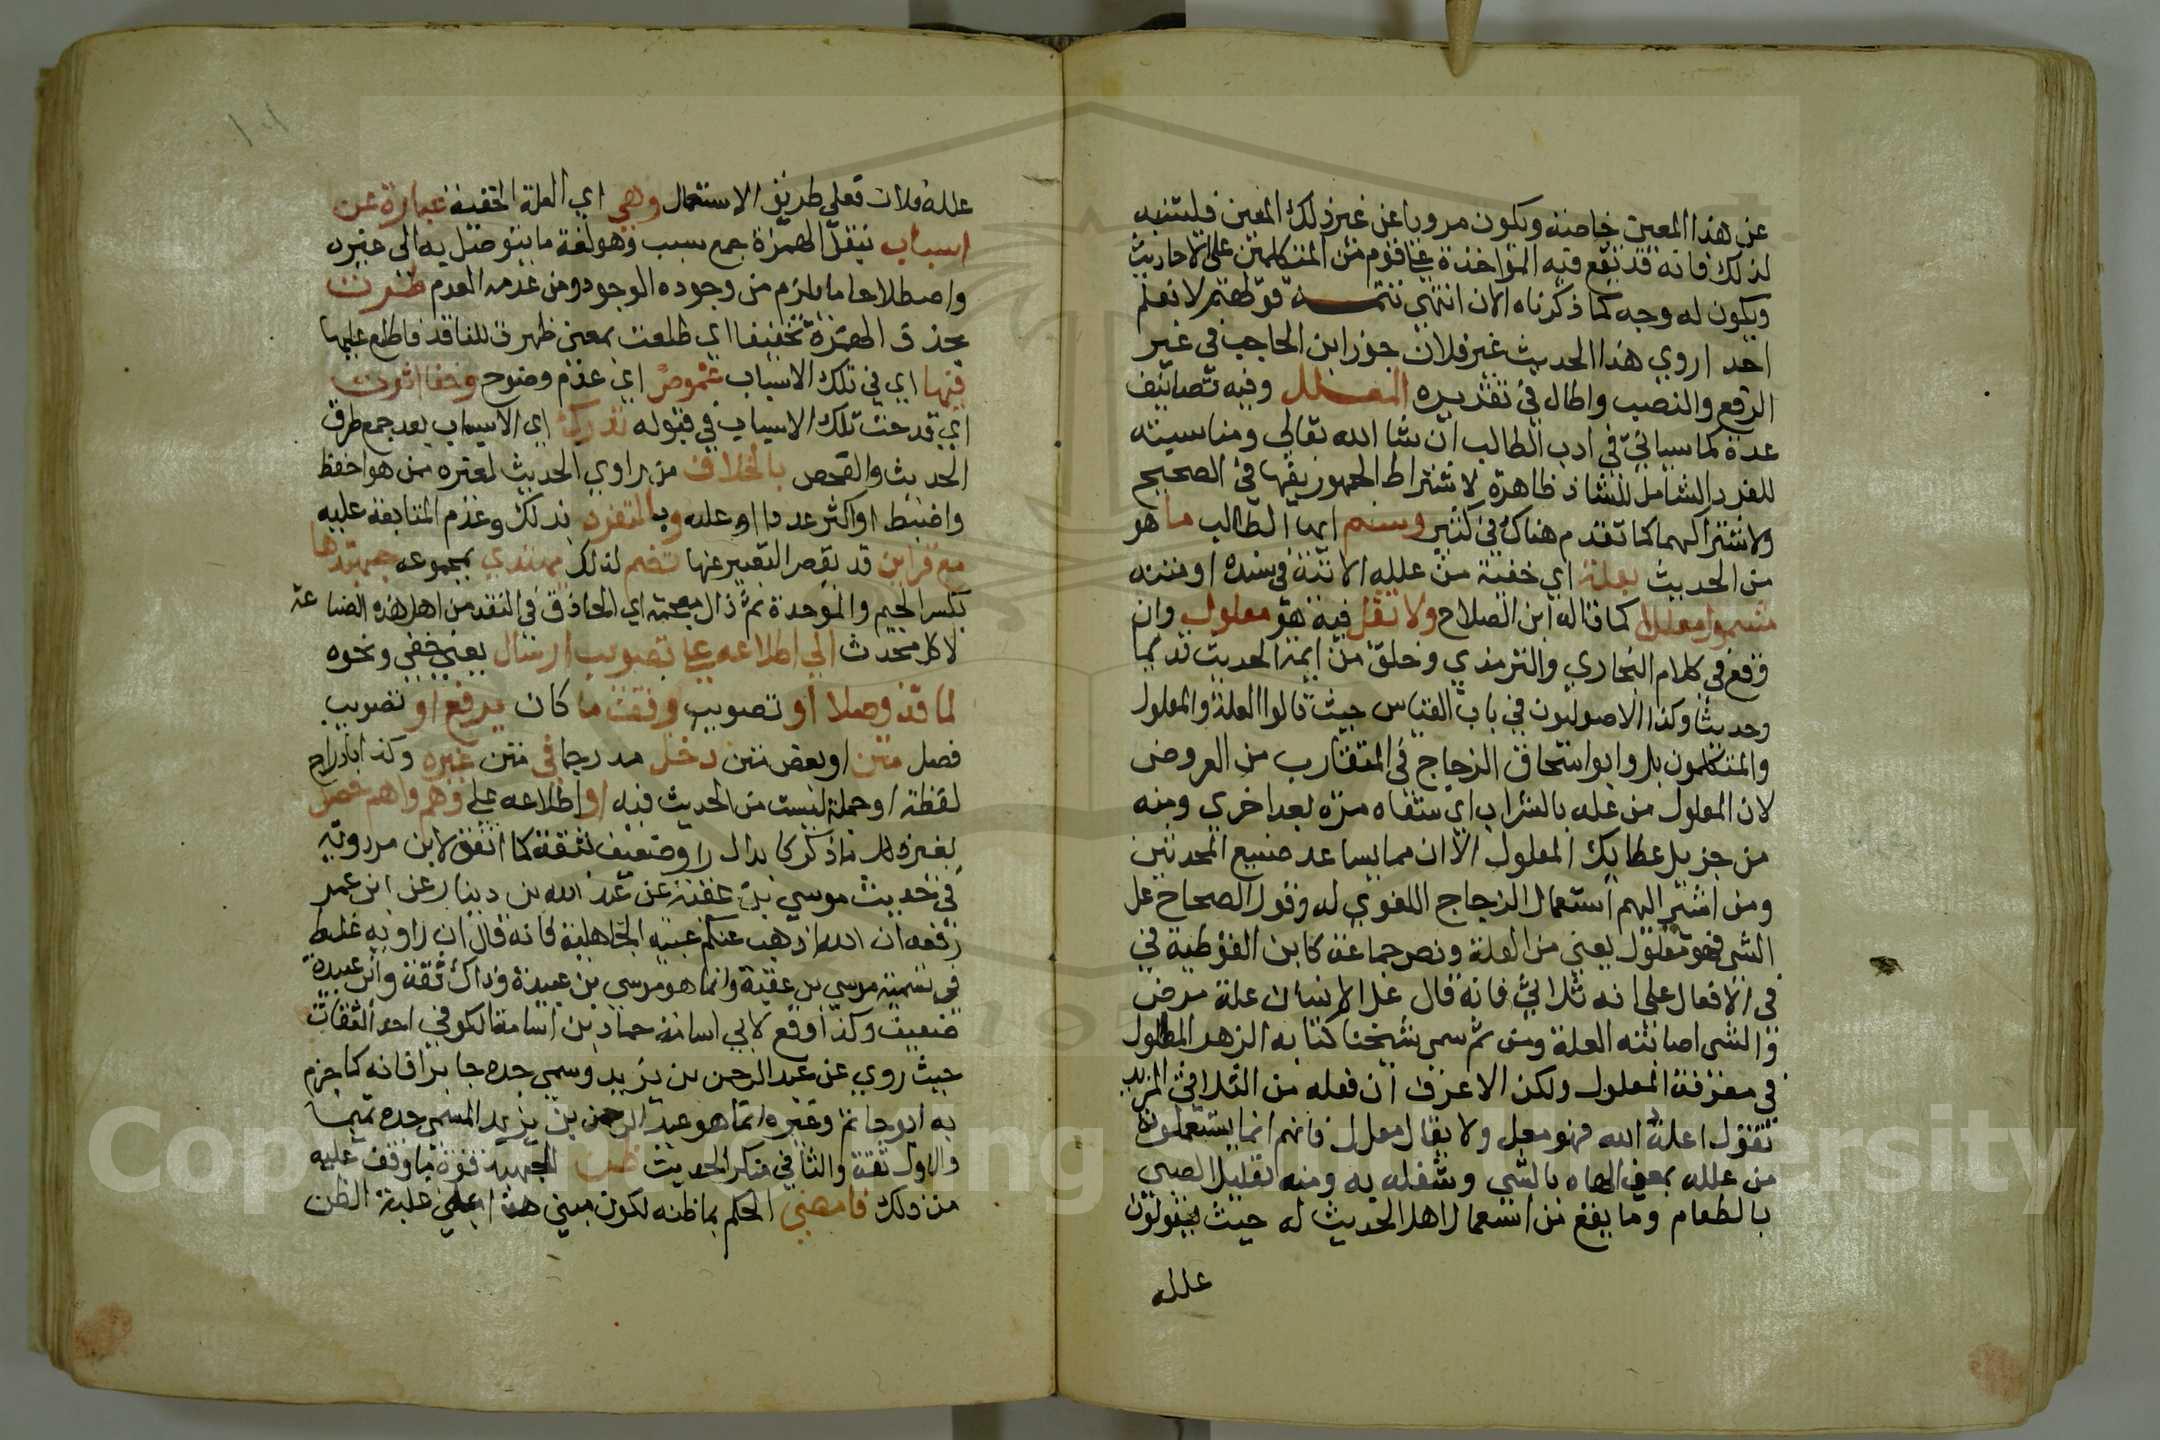 عن هذا المعين خاصة ويكون مرويا عن غير ذلك المعين فليتنبه
لذلك فانه قد تقع فيه المؤاخذة على قوم من المتكلمين على الاحاديث
ويكون له وجه كما ذكرناه الان انتهي تتمة قولهم لا نعلم
احد اروي هذا الحديث غير فلان جوز ابن الحاجب في غير
الرفع والنصب واطال في تقديره المعلل وفيه تصانيف
عدة كما سياتي في ادب الطالب ان شا الله تعالي ومناسبته
للفرد الشامل للشاذ ظاهرة لاشتراط الجمهور نفيها في الصحيح
ولاشتراكهما كما تقدم هناك في كثير وسم ايها الطالب ما هو
من الحديث بعلة اي خفية من علله الاتية في سنده او متنه
مشمول معللا كما قاله ابن الصلاح ولا تقل فيه هو معلول وان
وقع في كلام البخاري والترمذي وخلق من ايمة الحديث قديما
وحديثا وكذا الاصوليون في باب القياس حيث قالوا العلة والمعلول
والمتكلمون بل وابو اسحاق الزجاج في المتقارب من العروض
لان المعلول من عله بالشراب اي سقاه مرة بعد اخري ومنه
من جزيل عطايك المعلول الا ان مما يساعد صنيع المحدثين
ومن اشير اليهم استعمال الزجاج اللغوي له وقول الصحاح عل
الشي فهو معلول يعني من العلة ونص جماعة كابن القوطية في
في الافعال على انه ثلاثي فانه قال عل الانسان علة مرض
والشي اصابته العلة ومن ثم سمي شيخنا كتابه الزهر المطلول
في معرفة المعلول ولكن الاعرف ان فعله من الثلاثي المزيد
تقول اعله الله فهو معل ولا يقال معلل فانهم انما يستعملونه
من علله بمعني الهاه بالشي وشغله به ومنه تعليل الصبي
بالطعام وما يقع من استعمال اهل الحديث له حيث يقولون
علله
علله فلان فعلي طريق الاستعمال وهي اي العلة الخفية عبارة عن
اسباب بنقل الهمزة جمع سبب وهو لغة ما يتوصل به الى غيره
واصطلاحا ما يلزم من وجوده الوجود ومن عدمه العدم طرت
بحذف الهمزة تخفيفا اي طلعت بمعني ظهرت للناقد فاطلع عليها
فيها اي في تلك الاسباب غموض اي عدم وضوح وخفا اثرت
اي قدحت تلك الاسباب في قبوله تدرك اي الاسباب بعد جمع طرق
الحديث والفحص بالخلاف من راوي الحديث لغيره ممن هو احفظ
واضبط او اكثر عددا او عليه وبالتفرد بذلك وعدم المتابعة عليه
مع قراين قد يقصر التعبير عنها تضم لذلك يهتدي بمجموعه جهبذها
بكسر الجيم والموحدة ثم ذال معجمة اي الحاذق في النقد من اهل هذه الصناعة
لا كل محدث الي اطلاعه على تصويب ارسال يعني خفي ونحوه
لما قد وصلا او تصويب وقف ما كان يرفع او تصويب
فصل متن او بعض متن دخل مدرجا في متن غيره وكذا بادراج
لفظة او جملة ليست من الحديث فيه او اطلاعه على وهم واهم حصل
بغير ما ذكر كابدال راو ضعيف بثقة كما اتفق لابن مردويه
في حديث موسي بن عقبة عن عبد الله بن دينار عن ابن عمر
رفعه ان الله اذهب عنكم عبية الجاهلية فانه قال ان راويه غلط
في تسمية موسي بن عقبة وانما هو موسي بن عبيدة وذاك ثقة وابن عبيدة
ضعيف وكذا وقع لابي اسامة حماد بن اسامة الكوفي احد الثقات
حيث روي عن عبد الرحمن بن يزيد وسمي جده جابرا فانه كما جزم
به ابو حاتم وغيره انما هو عبد الرحمن بن يزيد المسمي جده تميما
والاول ثقة والثاني منكر الحديث ظن الجهبذ قوة ما وقف عليه
من ذلك فامضي الحكم بما ظنه لكون مبني هذا علي غلبة الظن
Copy King University